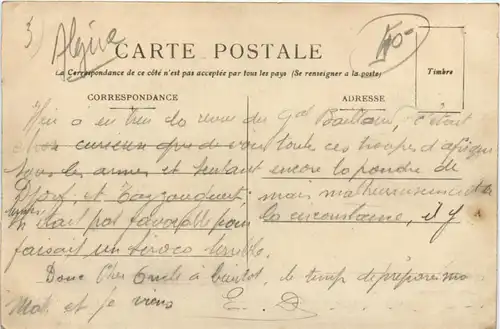 3)
Algérie
40-
CARTE POSTALE
La Correspondance de ce côté n'est pas acceptée par tous les pays (Se renseigner à la poste)
Timbre
CORRESPONDANCE
ADRESSE
Hier a eu lieu la revue du Gal Bailloud, c'était
curieux que de voir toutes ces troupes d'afrique
tous les armes et sentant encore la poudre de
et ; mais malheureusement le
temps n'était pas favorable pour la circonstance, il y
faisait un siroco terrible.
Donc Cher Oncle à bientôt, le temps de préparer ma
Mal. et je viens
E. D